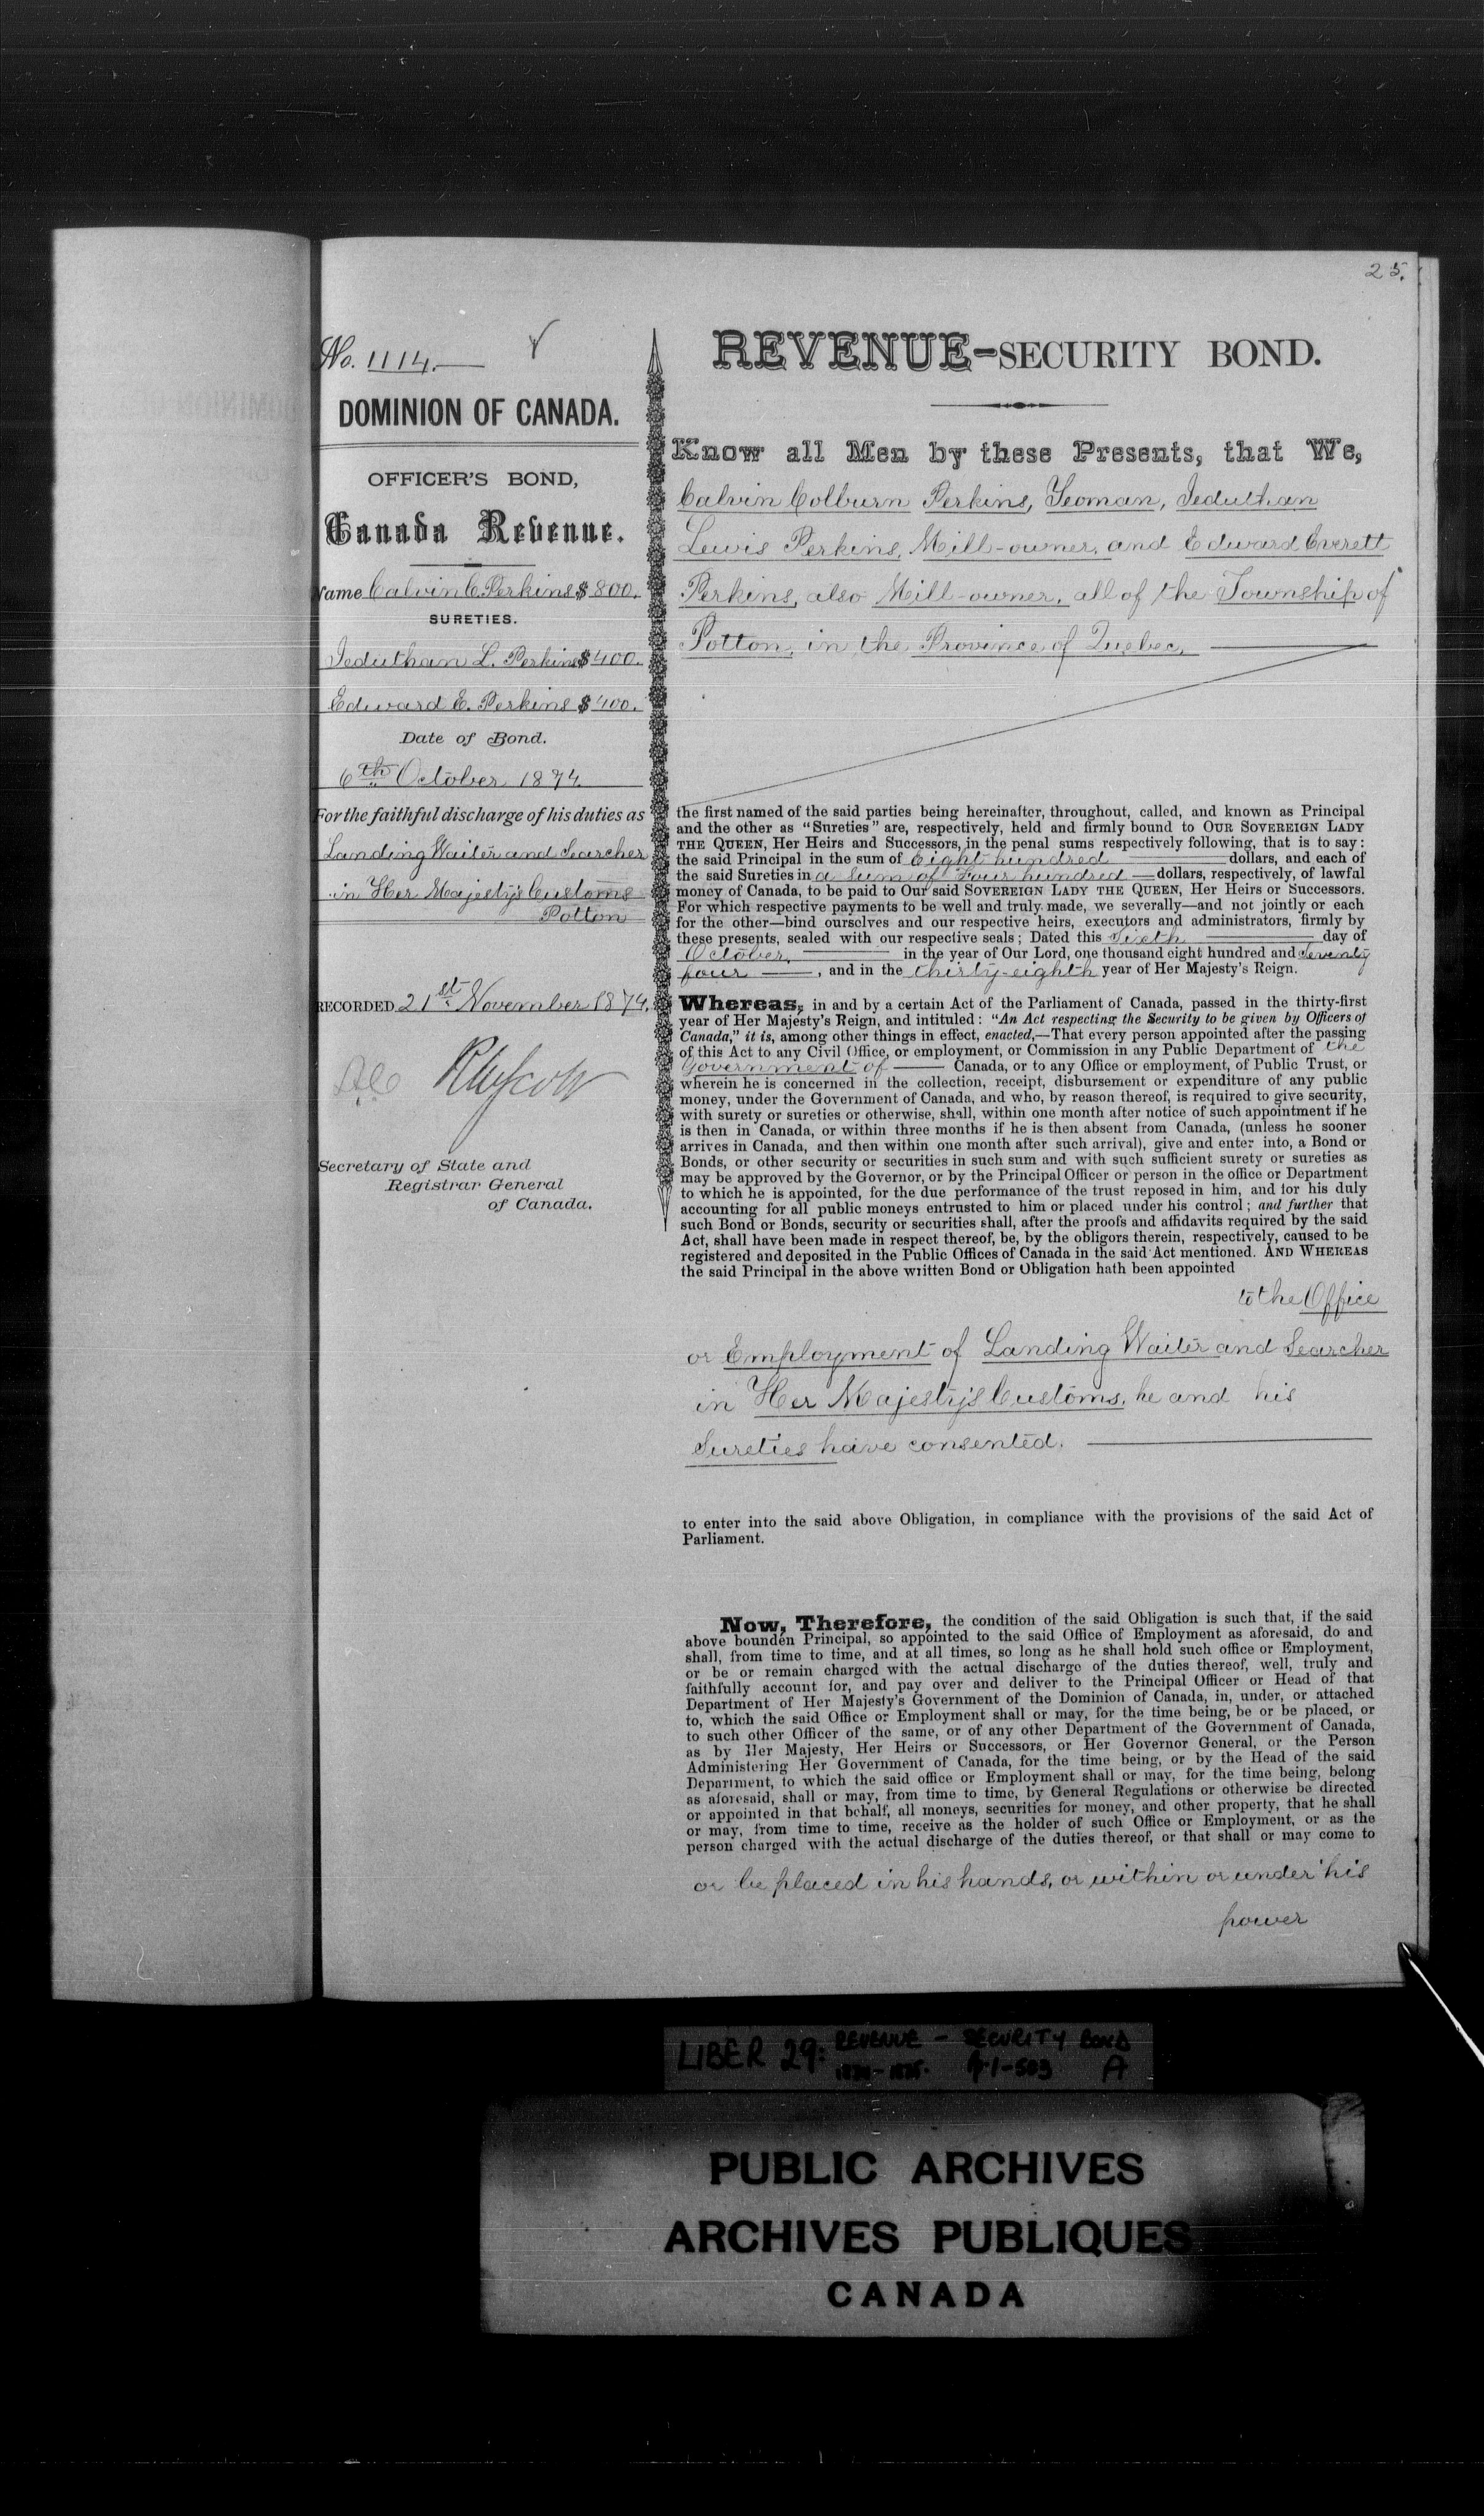 25.
No. 1114.
DOMINION OF CANADA.
OFFICER'S BOND,
Canada Revenue.
Name Calvin C. Perkins $ 800.
SURETIES.
Jeduthan L. Perkins $ 400.
Edward E. Perkins $ 400.
Date of Bond.
6th October 1874
For the faithful discharge of his duties as
Landing Waiter and Searcher
in Her Majesty's Customs
Potton
RECORDED 21st November 1874.
Secretary of State and
Registrar General
of Canada.
REVENUE-SECURITY BOND.
Know all Men by these Presents, that We,
Calvin Colburn Perkins, Yeoman, Jeduthan
Lewis Perkins, Mill-owner, and Edward Everett
Perkins, also Mill-owner, all of the Township of
Potton, in the Province of Quebec,
the first named of the said parties being hereinafter, throughout, called, and known as Principal
and the other as "Sureties" are, respectively, held and firmly bound to OUR SOVEREIGN LADY
THE QUEEN, Her Heirs and Successors, in the penal sums respectively following, that is to say:
the said Principal in the sum of Eight hundred dollars, and each of
the said Sureties in a sum of Four hundred dollars, respectively, of lawful
money of Canada, to be paid to Our said SOVEREIGN LADY THE QUEEN, Her Heirs or Successors.
For which respective payments to be well and truly made, we severally—and not jointly or each
for the other—bind ourselves and our respective heirs, executors and administrators, firmly by
these presents, sealed with our respective seals; Dated this Sixth day of
October, in the year of Our Lord, one thousand eight hundred and Seventy
four, and in the thirty-eighth year of Her Majesty's Reign.
Whereas, in and by a certain Act of the Parliament of Canada, passed in the thirty-first
year of Her Majesty's Reign, and intituled: "An Act respecting the Security to be given by Officers of
Canada," it is, among other things in effect, enacted,—That every person appointed after the passing
of this Act to any Civil Office, or employment, or Commission in any Public Department of the
Government of Canada, or to any Office or employment, of Public Trust, or
wherein he is concerned in the collection, receipt, disbursement or expenditure of any public
money, under the Government of Canada, and who, by reason thereof, is required to give security,
with surety or sureties or otherwise, shall, within one month after notice of such appointment if he
is then in Canada, or within three months if he is then absent from Canada, (unless he sooner
arrives in Canada, and then within one month after such arrival), give and enter into, a Bond or
Bonds, or other security or securities in such sum and with such sufficient surety or sureties as
may be approved by the Governor, or by the Principal Officer or person in the office or Department
to which he is appointed, for the due performance of the trust reposed in him, and for his duly
accounting for all public moneys entrusted to him or placed under his control; and further that
such Bond or Bonds, security or securities shall, after the proofs and affidavits required by the said
Act, shall have been made in respect thereof, be, by the obligors therein, respectively, caused to be
registered and deposited in the Public Offices of Canada in the said Act mentioned. AND WHEREAS
the said Principal in the above written Bond or Obligation hath been appointed
to the Office
or Employment of Landing Waiter and Searcher
in Her Majesty's Customs, he and his
Sureties have consented.
to enter into the said above Obligation, in compliance with the provisions of the said Act of
Parliament.
Now, Therefore, the condition of the said Obligation is such that, if the said
above bounden Principal, so appointed to the said Office of Employment as aforesaid, do and
shall, from time to time, and at all times, so long as he shall hold such office or Employment,
or be or remain charged with the actual discharge of the duties thereof, well, truly and
faithfully account for, and pay over and deliver to the Principal Officer or Head of that
Department of Her Majesty's Government of the Dominion of Canada, in, under, or attached
to, which the said Office or Employment shall or may, for the time being, be or be placed, or
to such other Officer of the same, or of any other Department of the Government of Canada,
as by Her Majesty, Her Heirs or Successors, or Her Governor General, or the Person
Administering Her Government of Canada, for the time being, or by the Head of the said
Department, to which the said office or Employment shall or may, for the time being, belong
as aforesaid, shall or may, from time to time, by General Regulations or otherwise be directed
or appointed in that behalf, all moneys, securities for money, and other property, that he shall
or may, from time to time, receive as the holder of such Office or Employment, or as the
person charged with the actual discharge of the duties thereof, or that shall or may come to
or be placed in his hands, or within or under his
power
LIBER 29: REVENUE - SECURITY BOND
1874-1875. p. 1-503 A
PUBLIC ARCHIVES
ARCHIVES PUBLIQUES
CANADA